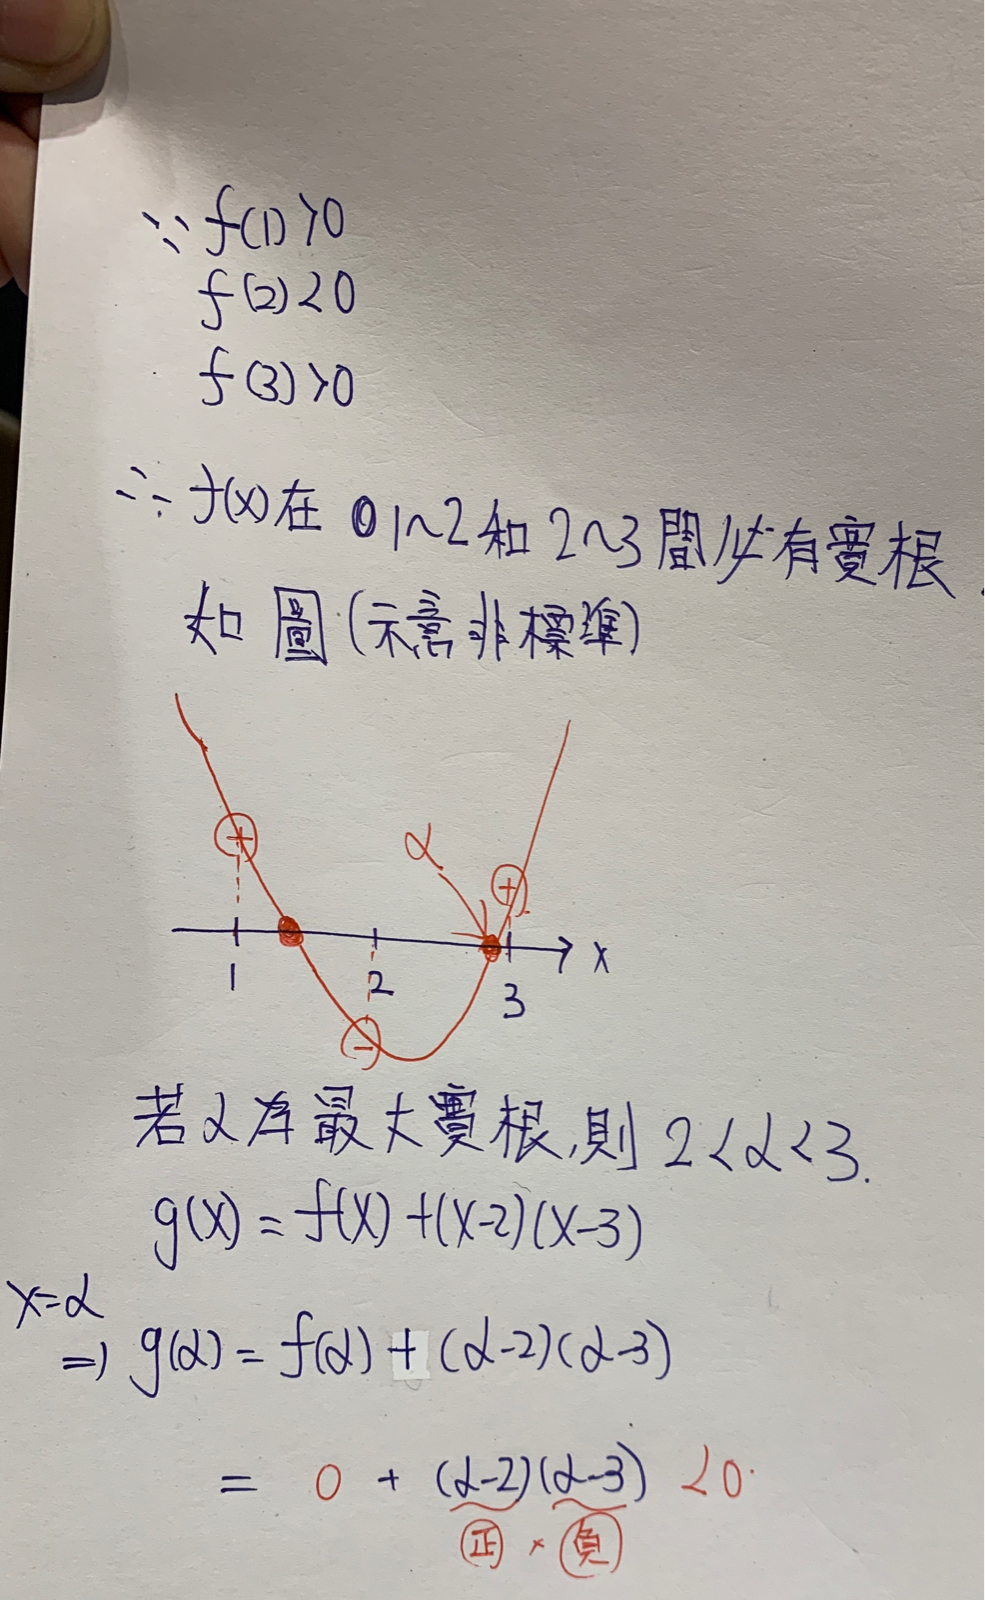 ∵ f(1)>0
f(2)<0
f(3)>0
∴ f(x)在 1~2和2~3間必有實根
如圖(示意非標準)
α
+
+
1
2
3
x
-
若α為最大實根,則 2<α<3.
g(x)=f(x)+(x-2)(x-3)
x=α
⇒ g(α)=f(α)+(α-2)(α-3)
= 0 + (α-2)(α-3) <0.
正 × 負